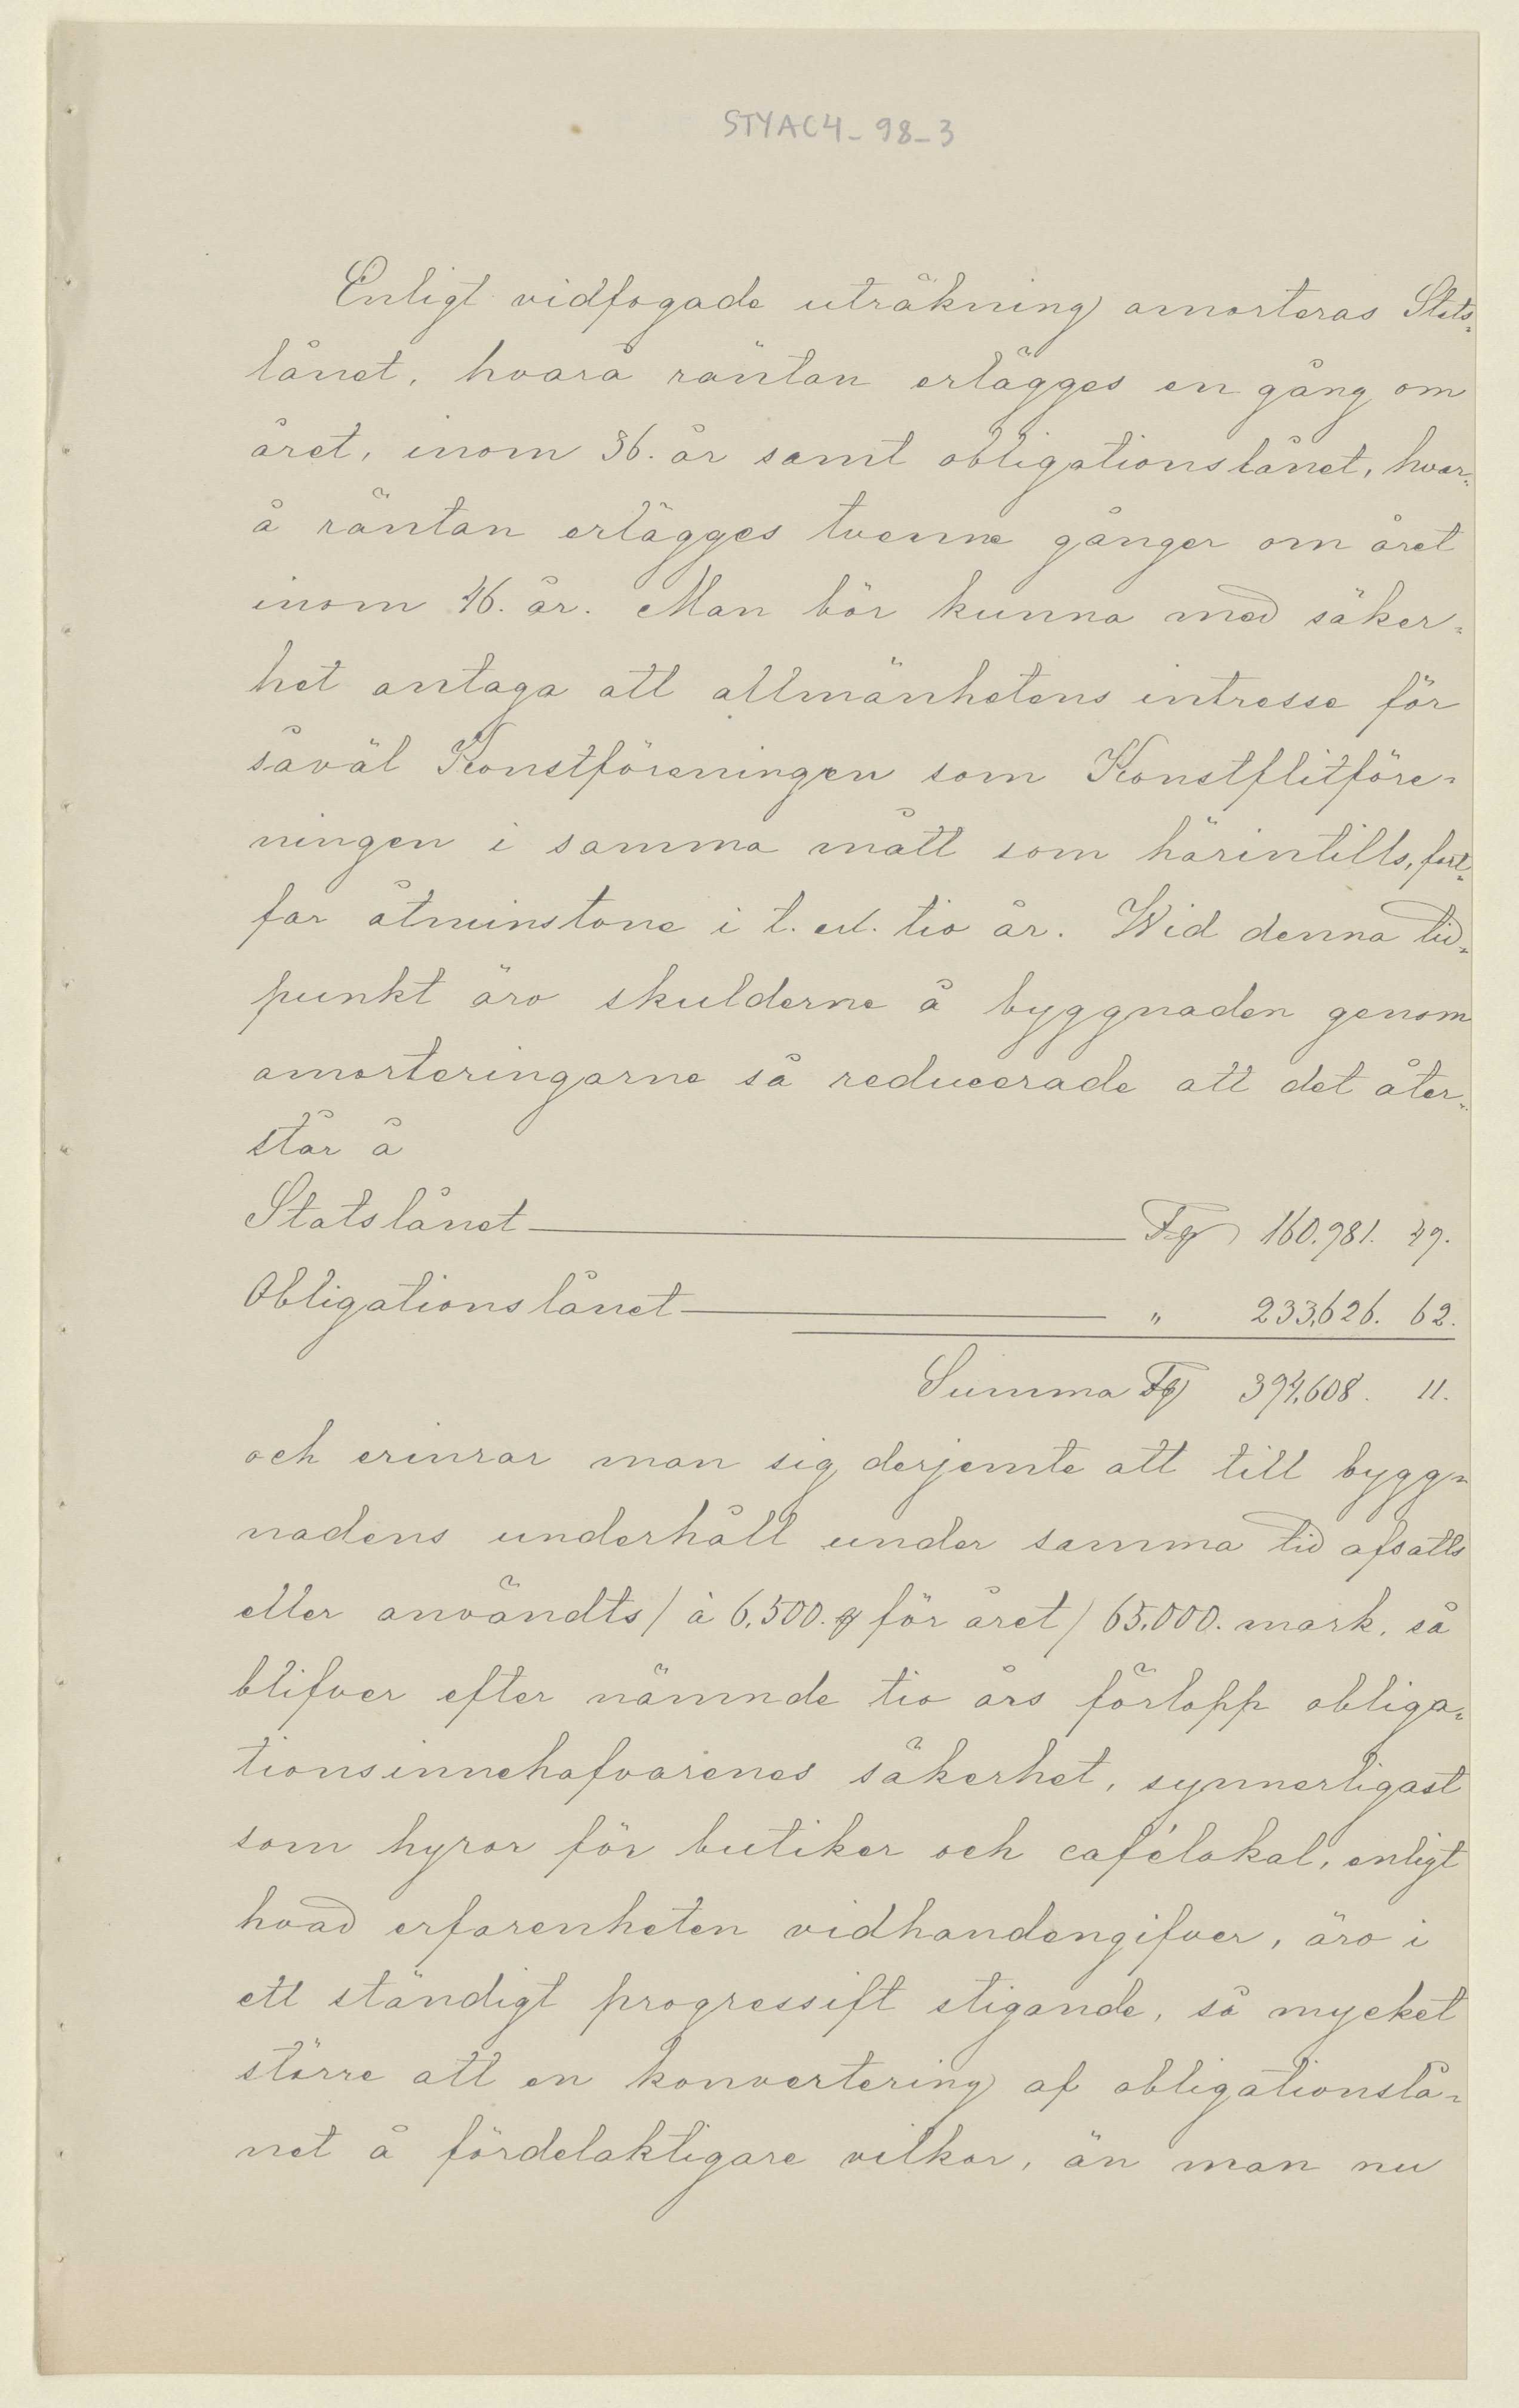 STYAC4-98-3
Enligt vidfogade uträkning amorteras Stats-
lånet, hvarå räntan erlägges en gång om
året, inom 36. år samt obligationslånet, hvar-
å räntan erlägges tvenne gånger om året
inom 46. år. Man bör kunna med säker-
het antaga att allmänhetens intresse för
såväl Konstföreningen som Konstflitföre-
ningen i samma mått som härintills, fort-
far åtminstone i t. ex. tio år. Wid denna tid-
punkt äro skulderne å byggnaden genom
amorteringarne så reducerade att det åter-
står å
Statslånet Fg 160.981. 49.
Obligationslånet " 233,626. 62.
Summa Fg 394,608. 11.
och erinrar man sig derjemte att till bygg-
nadens underhåll under samma tid afsatts
eller användts / à 6,500. för året / 65.000. mark, så
blifver efter nämnde tio års förlopp obliga-
tionsinnehafvarenes säkerhet, synnerligast
som hyror för butiker och cafélokal, enligt
hvad erfarenheten vidhandengifver, äro i
ett ständigt progressift stigande, så mycket
större att en konvertering af obligationslå-
net å fördelaktigare vilkor, än man nu